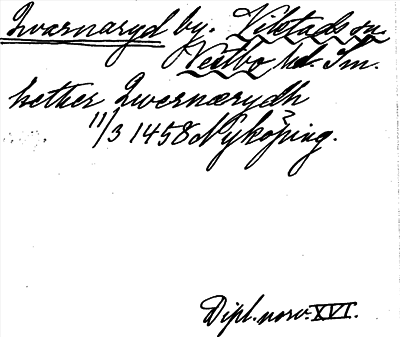 Qvarnaryd by. Vikstads sn.
Vestbo hd. Sm.
hether Qwernærydh
11/3 1458 Nyköping.
Dipl. norv. XVI.